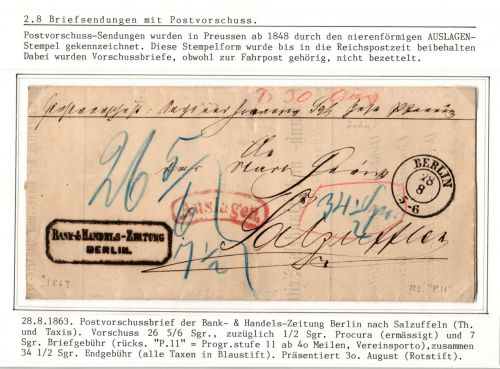 2.8 Briefsendungen mit Postvorschuss.
Postvorschuss-Sendungen wurden in Preussen ab 1848 durch den nierenförmigen AUSLAGEN-
Stempel gekennzeichnet. Diese Stempelform wurde bis in die Reichspostzeit beibehalten
Dabei wurden Vorschussbriefe, obwohl zur Fahrpost gehörig, nicht bezettelt.
Auslagen.
BERLIN
28
8
5-6
34 1/2
26 5/6
7 1/2
BANK-& HANDELS-ZEITUNG
BERLIN.
Salzufflen
1863
RS. "P.11"
28.8.1863. Postvorschussbrief der Bank- & Handels-Zeitung Berlin nach Salzuffeln (Th.
und Taxis). Vorschuss 26 5/6 Sgr., zuzüglich 1/2 Sgr. Procura (ermässigt) und 7
Sgr. Briefgebühr (rücks. "P.11" = Progr.stufe 11 ab 4o Meilen, Vereinsporto),zusammen
34 1/2 Sgr. Endgebühr (alle Taxen in Blaustift). Präsentiert 3o. August (Rotstift).